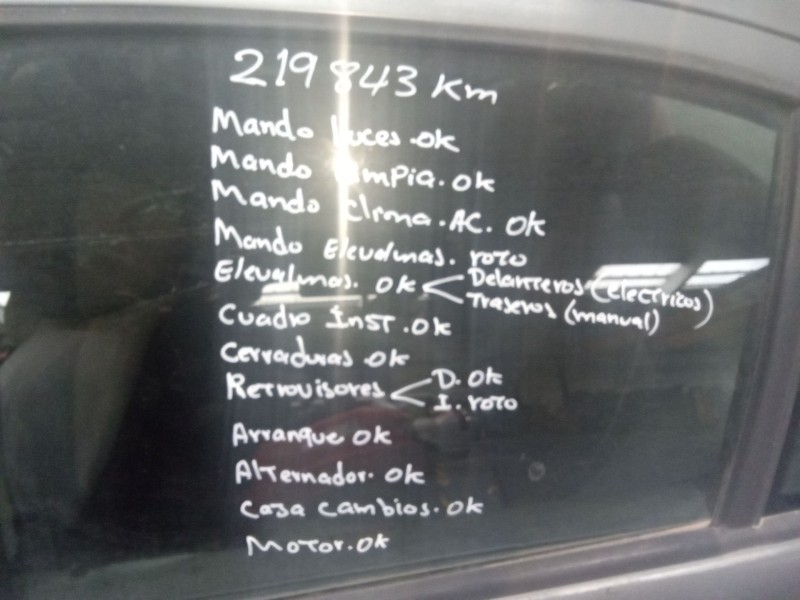 219843 Km
Mando luces.ok
Mando limpia.ok
Mando clima.AC. ok
Mando Elevalunas. roto
Elevalunas. ok < Delanteros (electricos)
Traseros (manual)
Cuadro Inst.ok
Cerraduras.ok
Retrovisores < D. ok
I. roto
Arranque ok
Alternador. ok
Caja cambios.ok
Motor.ok